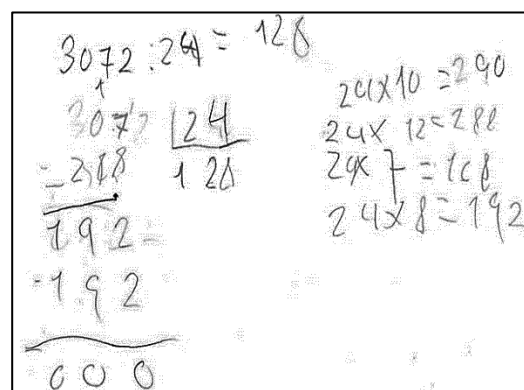 3072:24=128
3072 24
-288 128
192
-192
000
24x10=240
24x12=288
24x7=168
24x8=192